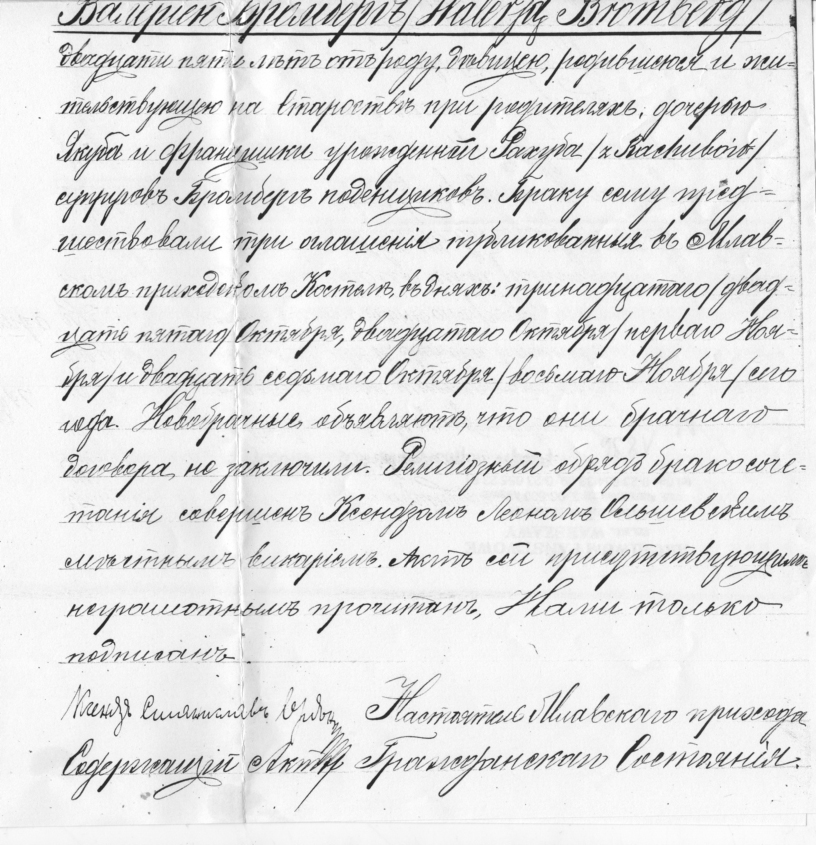 Бромбергъ /Walerją Bromberg/
двадцати пяти лѣтъ отъ роду, дѣвицею, родившеюся и жи-
тельствующею на Староствѣ при родителяхъ, дочерью
Якуба и Францишки урожденной Рахуба /z Rachubów/
супруговъ Бромбергъ поденщиковъ. Браку сему пред-
шествовали три оглашенія публикованныя въ Млав-
скомъ приходскомъ Костелѣ, въ дняхъ: тринадцатаго /двад-
цать пятаго/ Октября, двадцатаго Октября /перваго Ноя-
бря/ и двадцать седьмаго Октября /восьмаго Ноября/ сего
года. Новобрачные объявляютъ, что они брачнаго
договора не заключили. Религіозный обрядъ бракосоче-
танія совершенъ Ксендзомъ Леономъ Ольшевскимъ
мѣстнымъ викаріемъ. Актъ сей присутствующимъ
неграмотнымъ прочитанъ, Нами только
подписанъ.
Ксендзъ Станиславъ Настоятель Млавскаго прихода
Содержащій Акты Гражданскаго Состоянія.